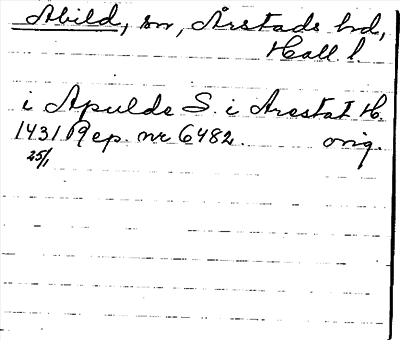 Abild, sn, Årstads hd,
Hall. l.
i Apulde S. i Arestat H.
1431 Rep. nr 6482 orig.
25/1